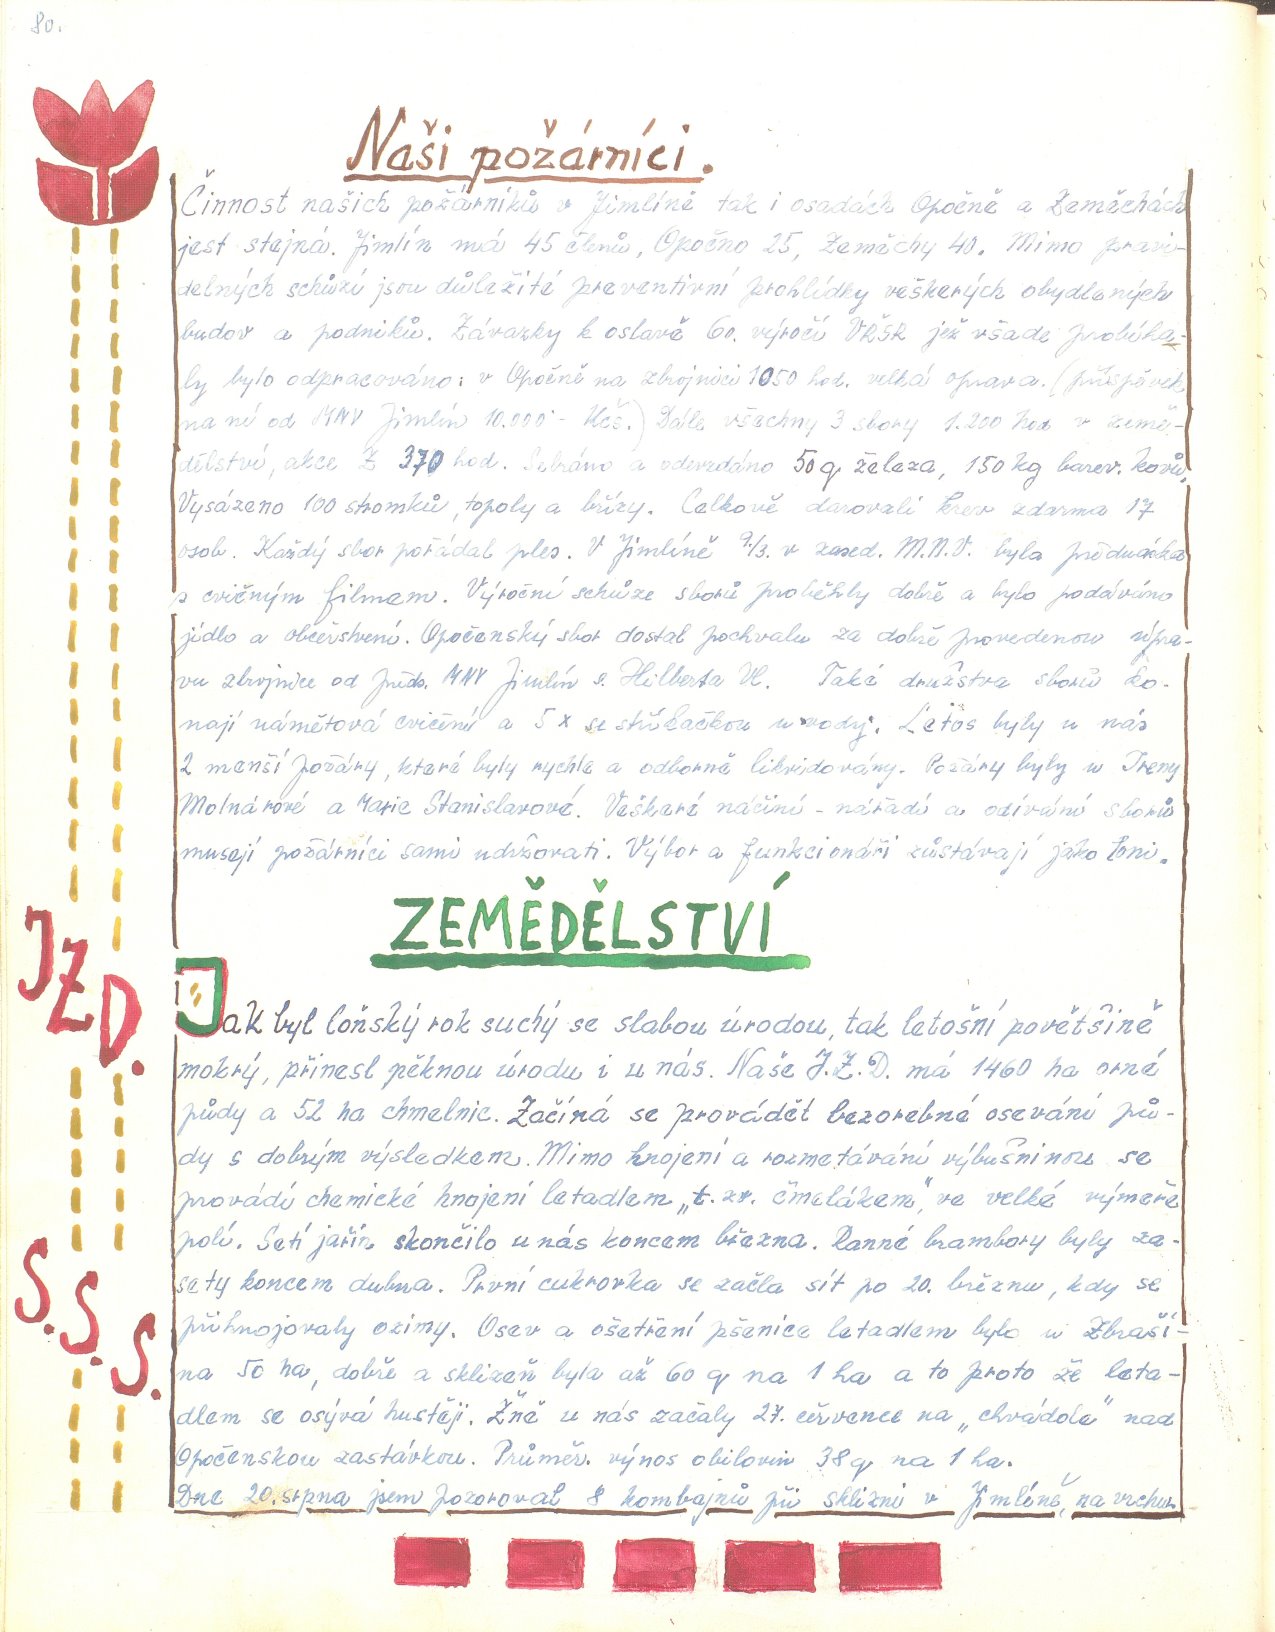 80.
Naši požárníci.
Činnost našich požárníků v Jimlíně tak i osadách Opočně a Zeměchách
jest stejná. Jimlín má 45 členů, Opočno 25, Zeměchy 40. Mimo pravi-
delných schůzí jsou důležité preventivní prohlídky veškerých obydlených
budov a podniků. Závazky k oslavě 60. výročí VŘSR jež všade probíha-
ly bylo odpracováno: v Opočně na zbrojnici 1050 hod. velká oprava. (příspěvek
na ní od MNV Jimlín 10.000 - Kčs.) Dále všechny 3 sbory 1.200 hod v země-
dělství, akce Z 370 hod. Sebráno a odevzdáno 50 q železa, 150 kg barev. kovů,
Vysázeno 100 stromků, topoly a břízy. Celkově darovali krev zdarma 17
osob. Každý sbor pořádal ples. V Jimlíně 9./3. v zased. M.N.V. byla přednáška
s cvičným filmem. Výroční schůze sborů proběhly dobře a bylo podáváno
jídlo a občerstvení. Opočenský sbor dostal pochvalu za dobře provedenou úpra-
vu zbrojnice od předs. MNV Jimlín s. Hilberta Vl. Také družstva sborů ko-
nají námětová cvičení a 5 x se stříkačkou u vody. Letos byly u nás
2 menší požáry, které byly rychle a odborně likvidovány. Požáry byly u Ireny
Molnárové a Marie Stanislavové. Veškeré náčiní - nářadí a odívání sborů
musejí požárníci sami udržovati. Výbor a funkcionáři zůstávají jako loni.
ZEMĚDĚLSTVÍ
J.Z.D.
Jak byl loňský rok suchý se slabou úrodou, tak letošní povětšině
mokrý, přinesl pěknou úrodu i u nás. Naše J.Z.D. má 1460 ha orné
půdy a 52 ha chmelnic. Začíná se provádět bezorebné osevání pů-
dy s dobrým výsledkem. Mimo hnojení a rozmetávání výbušninou se
provádí chemické hnojení letadlem „t. zv. čmelákem", ve velké výměře
polí. Setí jařin skončilo u nás koncem března. Ranné brambory byly za-
sety koncem dubna. První cukrovka se začla sít po 20. březnu, kdy se
přihnojovaly ozimy. Osev a ošetření pšenice letadlem bylo u Zbraší-
na 50 ha, dobře a sklizeň byla až 60 q na 1 ha a to proto že leta-
dlem se osývá hustěji. Žně u nás začaly 27. července na „chvádole" nad
Opočenskou zastávkou. Průměr. výnos obilovin 38 q na 1 ha.
Dne 20. srpna jsem pozoroval 8 kombajnů při sklizni v Jimlíně, na vrchu
S.S.S.